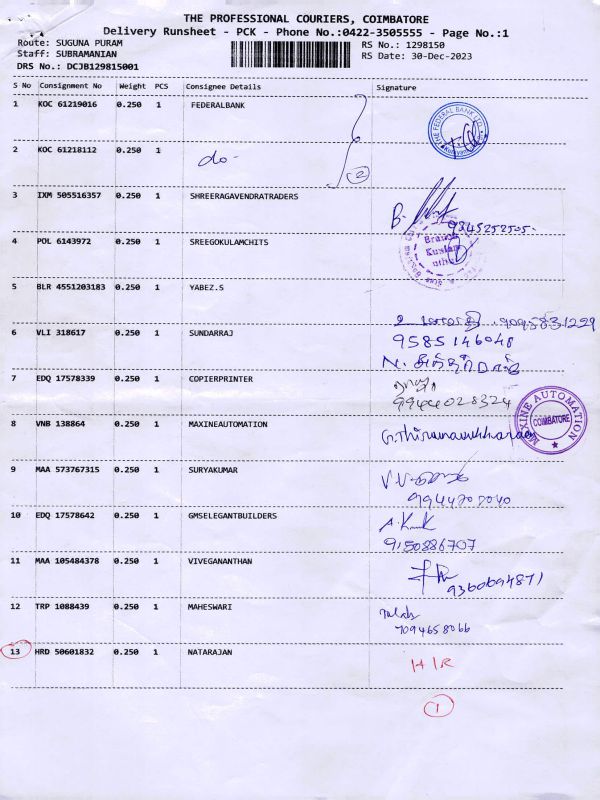 THE PROFESSIONAL COURIERS, COIMBATORE
Delivery Runsheet - PCK - Phone No.:0422-3505555 - Page No.:1
Route: SUGUNA PURAM
RS No.: 1298150
Staff: SUBRAMANIAN
RS Date: 30-Dec-2023
DRS No.: DCJB129815001
S No Consignment No Weight PCS Consignee Details Signature
1 KOC 61219016 0.250 1 FEDERALBANK
THE FEDERAL BANK LTD.
2 KOC 61218112 0.250 1 do-
2
3 IXM 505516357 0.250 1 SHREERAGAVENDRATRADERS
B. 9345252505.
4 POL 6143972 0.250 1 SREEGOKULAMCHITS
Branch
5 BLR 4551203183 0.250 1 YABEZ.S
6 VLI 318617 0.250 1 SUNDARRAJ
9585146048
N.
7 EDQ 17578339 0.250 1 COPIERPRINTER
9944028324
8 VNB 138864 0.250 1 MAXINEAUTOMATION
MAXINE AUTOMATION
COIMBATORE
9 MAA 573767315 0.250 1 SURYAKUMAR
V.V.
10 EDQ 17578642 0.250 1 GMSELEGANTBUILDERS
9150886707
11 MAA 105484378 0.250 1 VIVEGANANTHAN
9360694871
12 TRP 1088439 0.250 1 MAHESWARI
7094658066
13 HRD 50601832 0.250 1 NATARAJAN
H/R
1